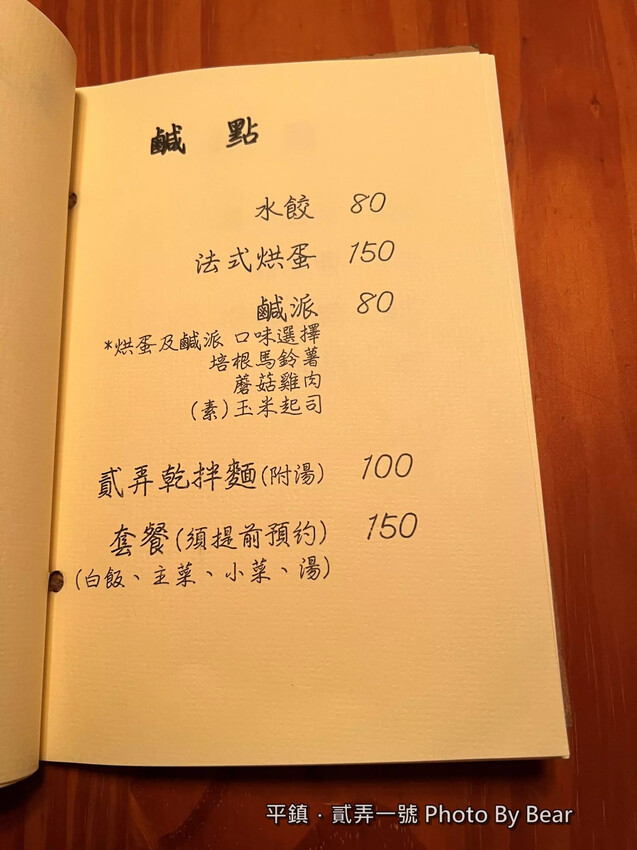 鹹點
水餃 80
法式烘蛋 150
鹹派 80
*烘蛋及鹹派 口味選擇
培根馬鈴薯
蘑菇雞肉
(素)玉米起司
貳弄乾拌麵(附湯) 100
套餐(須提前預約) 150
(白飯、主菜、小菜、湯)
平鎮·貳弄一號 Photo By Bear